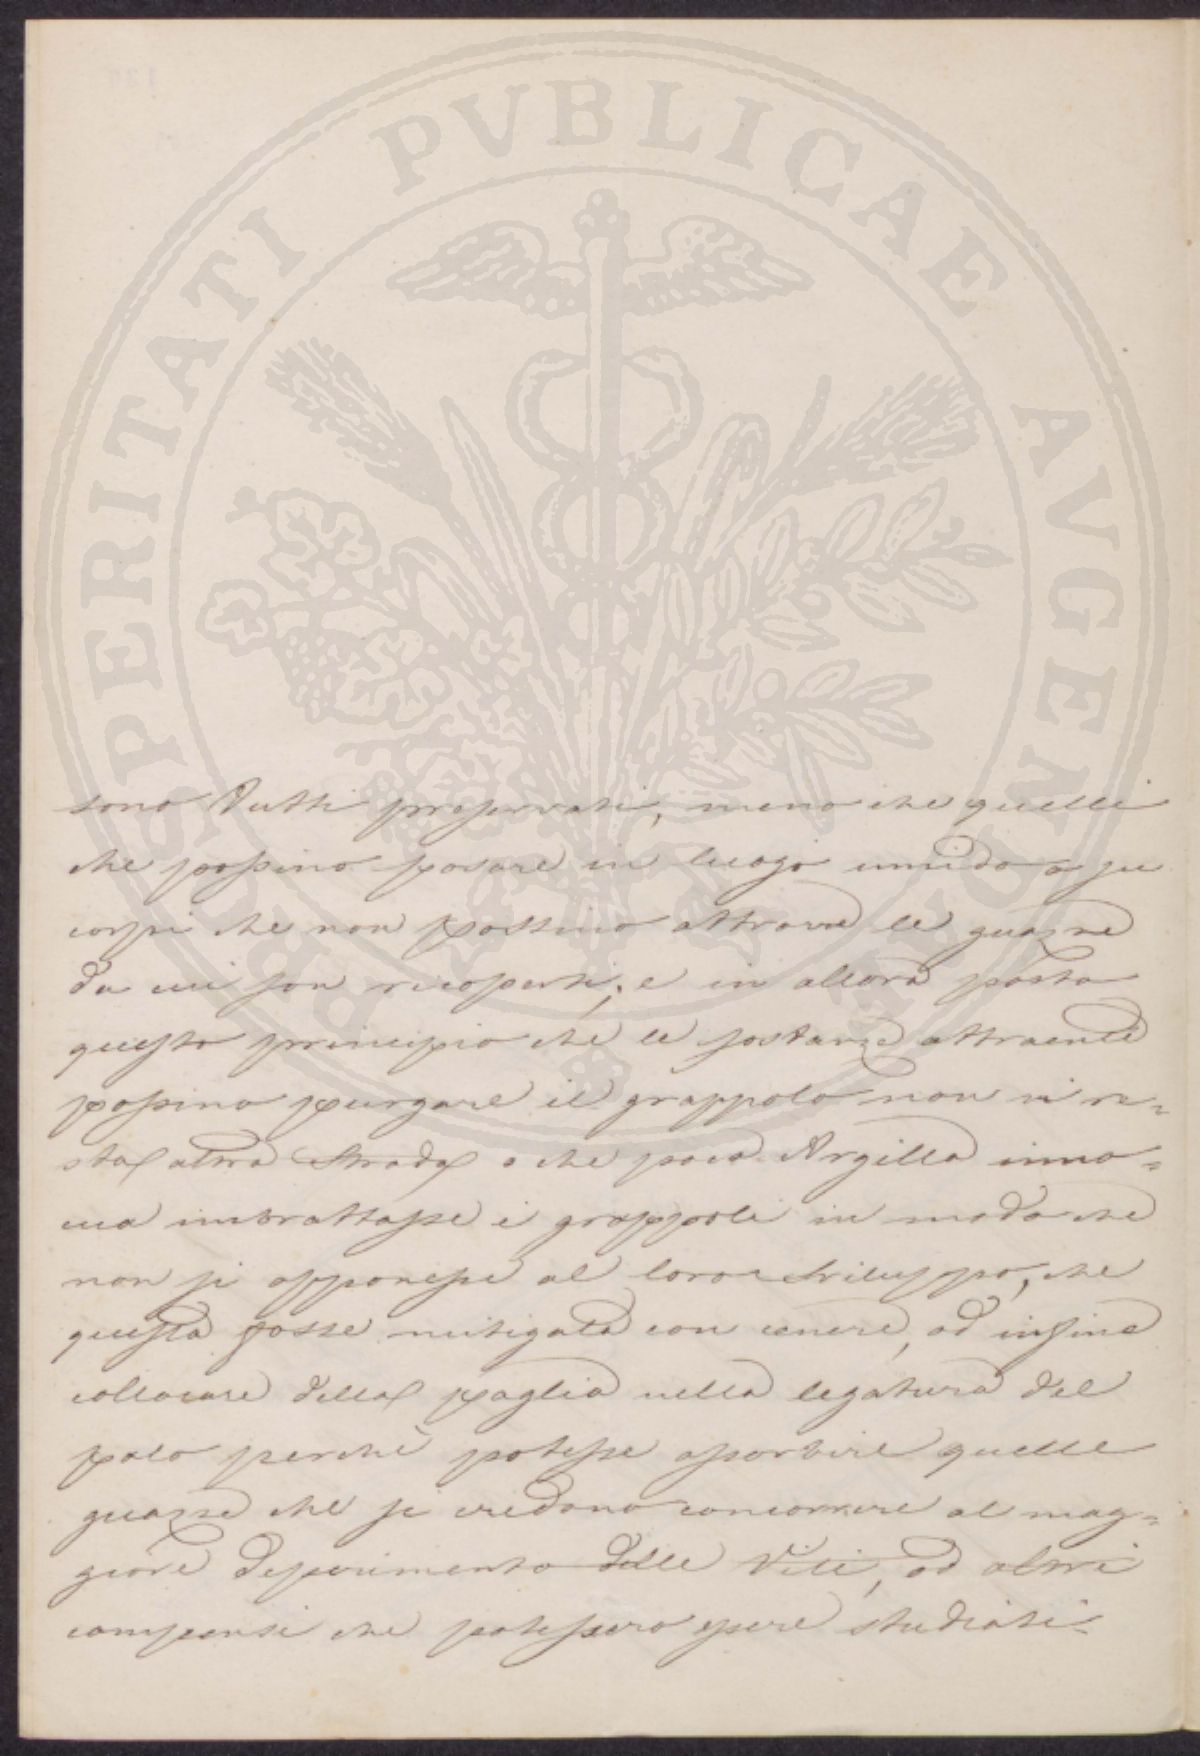 PROSPERITATI PVBLICAE AVGENDAE
sono tutti preservati, meno che quelli
che possino posare in luogo umido o su
corpi che non possino attrarre le guazze
da cui son ricoperti; e in allora posto
questo principio che le sostanze attraenti
possino purgare il grappolo non vi re=
sta altra strada o che poca Argilla inno=
cua imbrattasse i grappoli in modo che
non si opponesse al loro sviluppo, che
questa fosse mitigata con cenere, od infine
collocare della paglia nella legatura del
palo perchè potesse assorbire quelle
guazze che si credono concorrere al mag=
giore deperimento delle Viti, od altri
compensi che potessero essere studiati